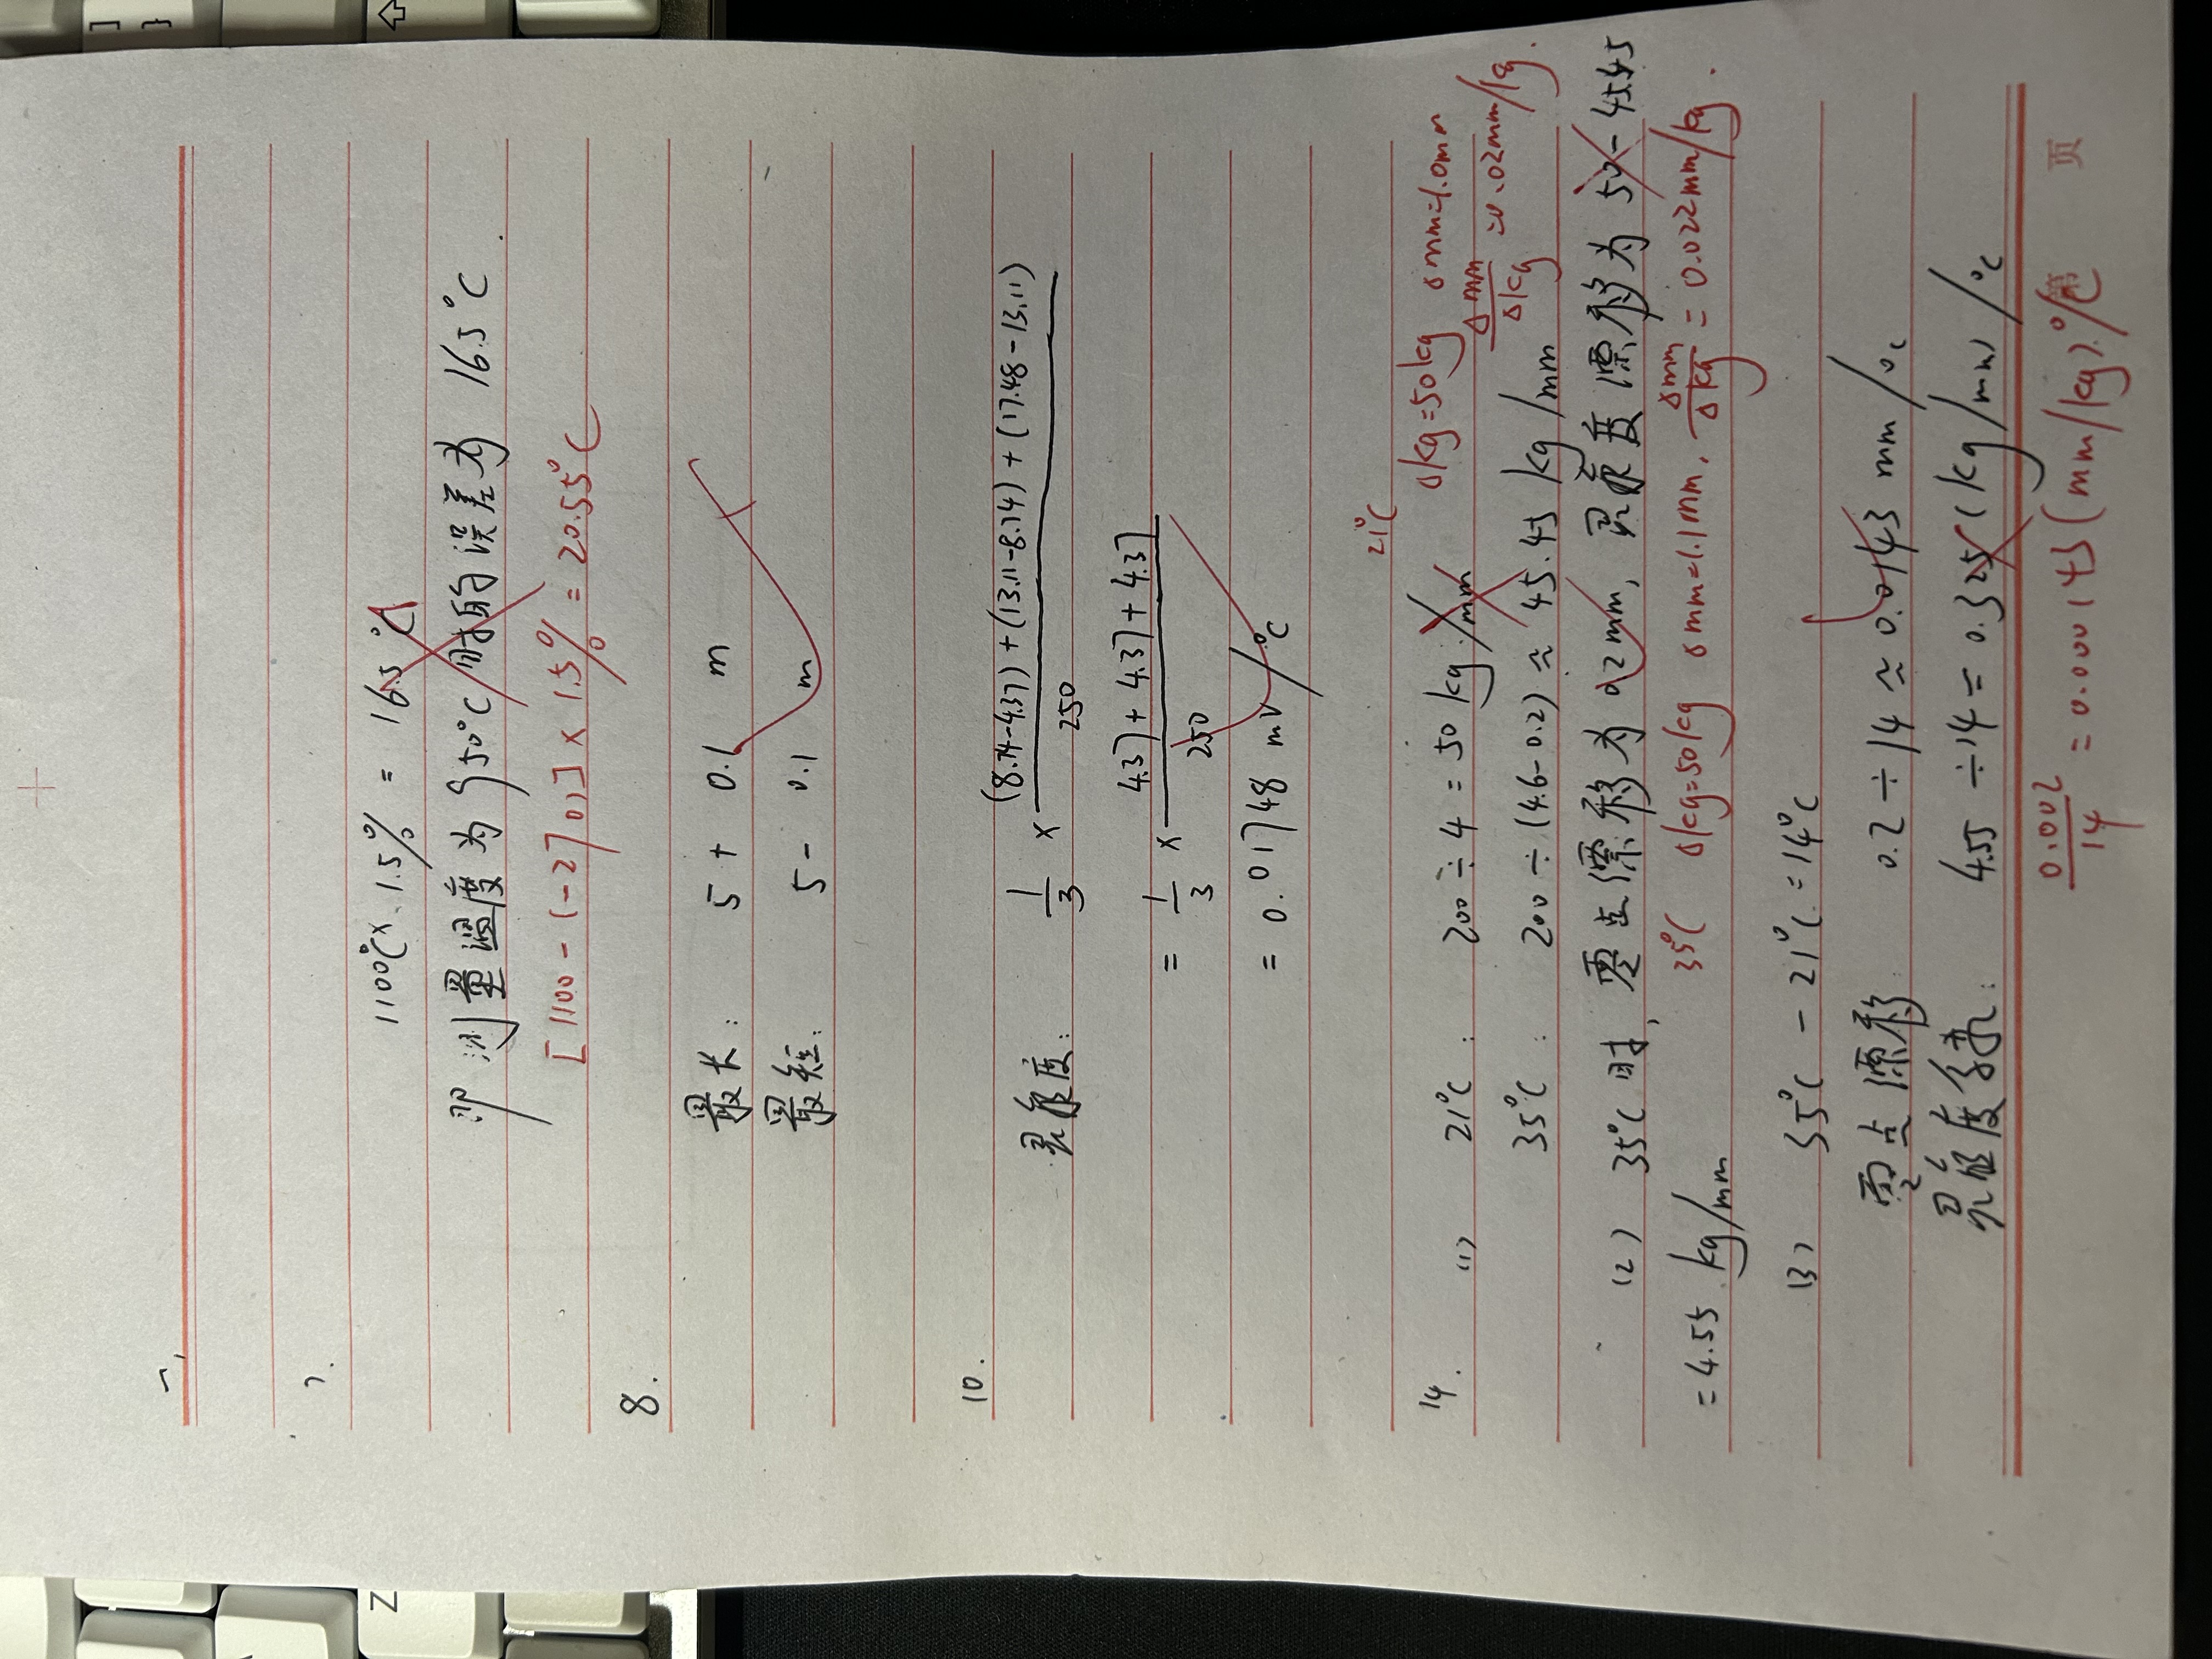 一、
7.
1100℃ × 1.5% = 16.5 ℃
即 测量温度为 950℃ 时的误差为 16.5℃.
[1100-(-270)] × 1.5% = 20.55℃
8.
最长： 5 + 0.1 m
最短： 5 - 0.1 m
10.
灵敏度： 1/3 × ((8.74-4.37) + (13.11-8.74) + (17.48-13.11))/250
= 1/3 × (4.37 + 4.37 + 4.37)/250
= 0.01748 mV/℃
21℃
Δkg=50kg Δmm=1.0mm
14. (1) 21℃： 200 ÷ 4 = 50 kg/mm
Δmm/Δkg = 0.02mm/kg.
35℃： 200 ÷ (4.6-0.2) ≈ 45.45 kg/mm
(2) 35℃时, 零点漂移为 0.2mm, 灵敏度漂移为 50-45.45
= 4.55 kg/mm
35℃ Δkg=50kg Δmm=1.1mm. Δmm/Δkg = 0.022mm/kg.
(3) 35℃ - 21℃ = 14℃
零点漂移 0.2 ÷ 14 ≈ 0.0143 mm/℃
灵敏度系数： 4.55 ÷ 14 = 0.325 (kg/mm)/℃
0.002/14 = 0.000143 (mm/kg)/℃
第 页
]
}
Z